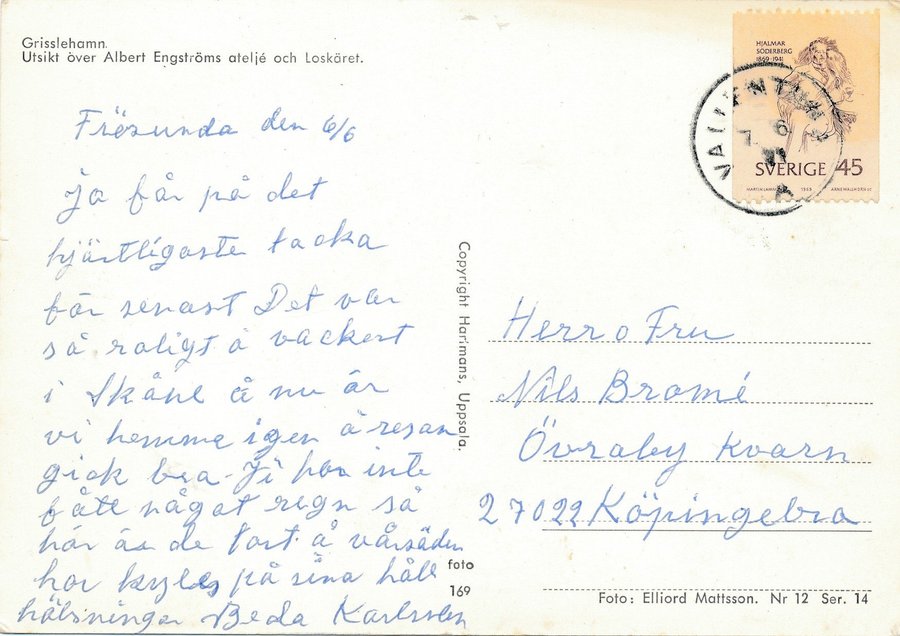 Grisslehamn.
Utsikt över Albert Engströms ateljé och Loskäret.
HJALMAR
SÖDERBERG
1869-1941
VALLENTUNA
7. 6
71
A
SVERIGE 45
1969
Frösunda den 6/6
Ja får på det
hjärtligaste tacka
för senast Det var
så roligt å vackert
i Skåne å nu är
vi hemma igen å resan
gick bra. Ji har inte
fått något regn så
här är de tort å vårsäden
har på sina håll
hälsningar Beda Karlsson
Copyright Harlmans, Uppsala.
Herr o Fru
Nils Bromé
Övraby Kvarn
27022 Köpingebro
foto
169
Foto: Elliord Mattsson. Nr 12 Ser. 14